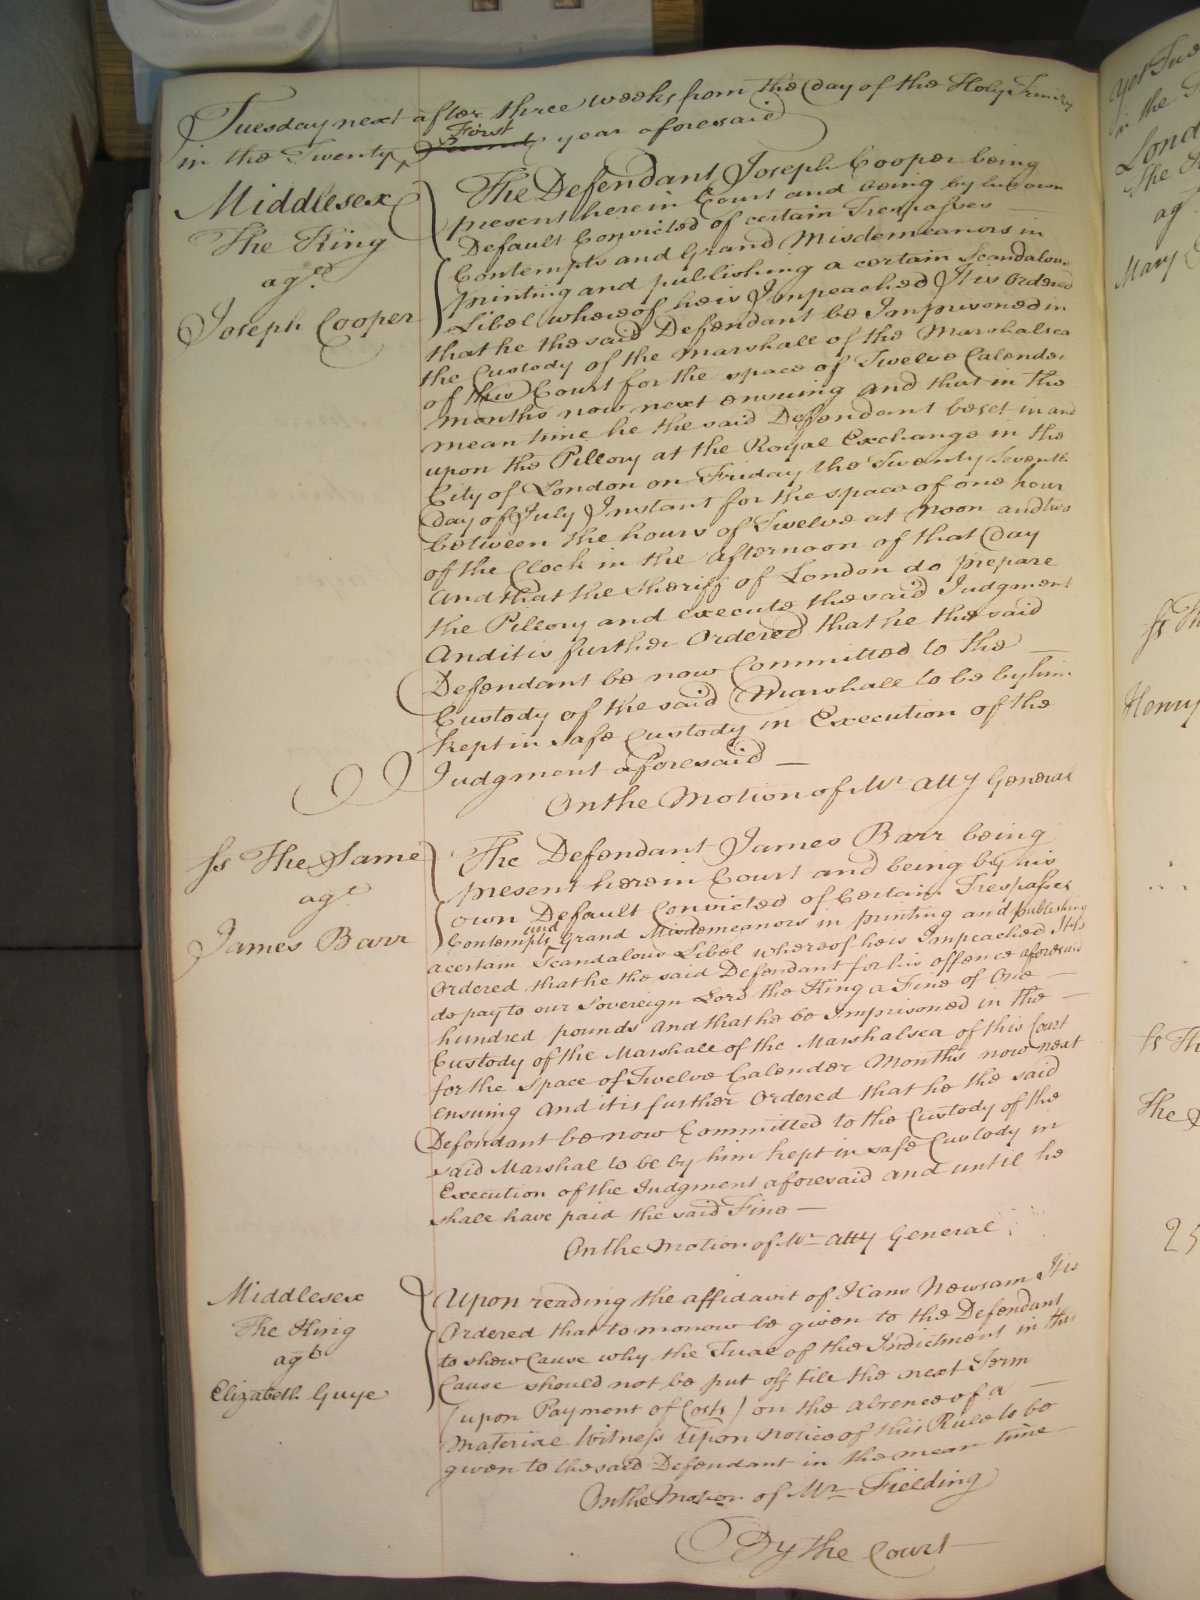 Tuesday next after three weeks from the day of the Holy Trinity
in the Twenty First year aforesaid
Middlesex
The King
agt
Joseph Cooper
The Defendant Joseph Cooper being
present here in Court and being by his own
Default Convicted of certain Trespasses
Contempts and Grand Misdemeanors in
printing and publishing a certain Scandalous
Libel whereof he is Impeached It is Ordered
that he the said Defendant be Imprisoned in
the Custody of the Marshall of the Marshalsea
of this Court for the space of Twelve Calendar
months now next ensuing and that in the
mean time he the said Defendant be set in and
upon the Pillory at the Royal Exchange in the
City of London on Friday the Twenty Seventh
day of July Instant for the space of one hour
between the hours of Twelve at Noon and two
of the Clock in the afternoon of that Day
And that the Sheriff of London do prepare
the Pillory and execute the said Judgment
And it is further Ordered that he the said
Defendant be now Committed to the
Custody of the said Marshall to be by him
kept in safe Custody in Execution of the
Judgment aforesaid
On the Motion of Mr Atty General
Ss The Same
agt
James Barr
The Defendant James Barr being
present here in Court and being by his
own Default Convicted of Certain Trespasses
Contempts and Grand Misdemeanors in printing and publishing
a certain Scandalous Libel whereof he is Impeached It is
Ordered that he the said Defendant for his offence aforesaid
do pay to our Sovereign Lord the King a Fine of One
hundred pounds And that he be Imprisoned in the
Custody of the Marshall of the Marshalsea of this Court
for the Space of Twelve Calender Months now next
ensuing And it is further Ordered that he the said
Defendant be now Committed to the Custody of the
said Marshal to be by him kept in safe Custody in
Execution of the Judgment aforesaid and until he
shall have paid the said Fine
On the Motion of Mr Atty General
Middlesex
The King
agt
Elizabeth Guye
Upon reading the affidavit of Hans Newsam It is
Ordered that tomorrow be given to the Defendant
to shew Cause why the Trial of the Indictment in this
Cause should not be put off till the next Term
(upon Payment of Costs) on the absence of a
Material Witness Upon notice of this Rule to be
given to the said Defendant in the mean time
On the Motion of Mr Fielding
By the Court
in the
Lond
The
ag
Mary
Ss Th
Henry
Ss Th
The
25